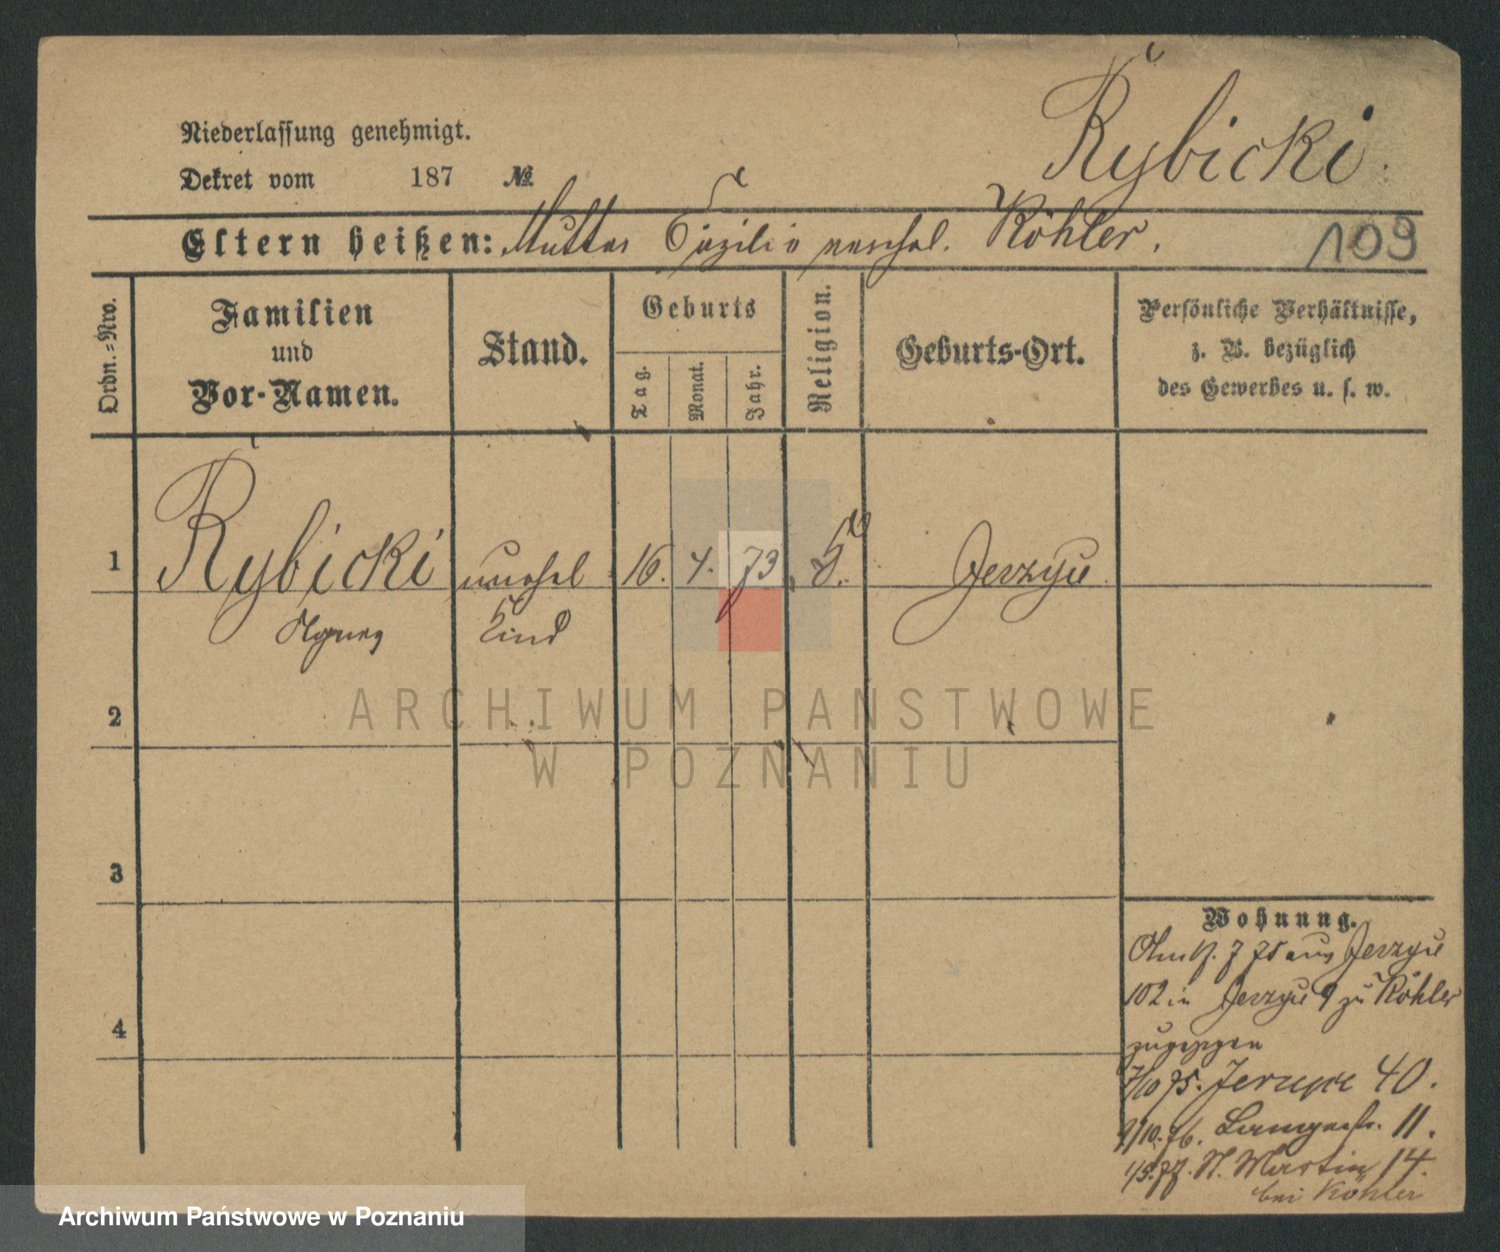 Rybicki.
Niederlassung genehmigt.
Dekret vom 187 №
Eltern heißen: Mutter Cäzilie verehel. Köhler.
109
Ordn.=Nro.
Familien und Vor-Namen.
Stand.
Geburts
Tag.
Monat.
Jahr.
Religion.
Geburts-Ort.
Persönliche Verhältnisse,
z. B. bezüglich
des Gewerbes u. s. w.
1 Rybicki unehel 16. 4. 73. k. Jerzyce
Agnes Kind
2
3
4
Wohnung.
75 aus Jerzyce
102 in Jerzyce 9 zu Köhler
zugezogen
7/10 75. Jerzyce 40.
9/10. 76. Langestr. 11.
St. Martin 14.
bei Köhler
ARCHIWUM PAŃSTWOWE
W POZNANIU
Archiwum Państwowe w Poznaniu